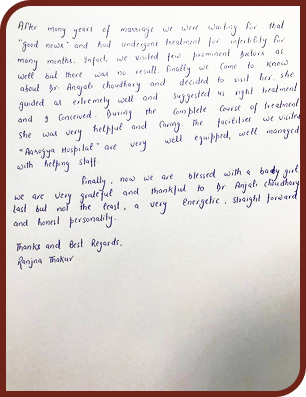 After many years of marriage we were waiting for that
"good news" and had undergone treatment for infertility for
many months. Infact, we visited few prominent doctors as
well but there was no result. Finally we came to know
about Dr Anjali choudhary and decided to visit her. She
guided as extremely well and suggested us right treatment
and I Conceived. During the complete Course of treatment
she was very helpful and Caring. The facilities we visited
"Aarogya Hospital" are very well equipped, well managed
with helping staff.
Finally, now we are blessed with a baby girl
we are very grateful and thankful to Dr Anjali choudhary
Last but not the least, a very energetic, straight forward
and honest personality.
Thanks and Best Regards,
Ranjna Thakur